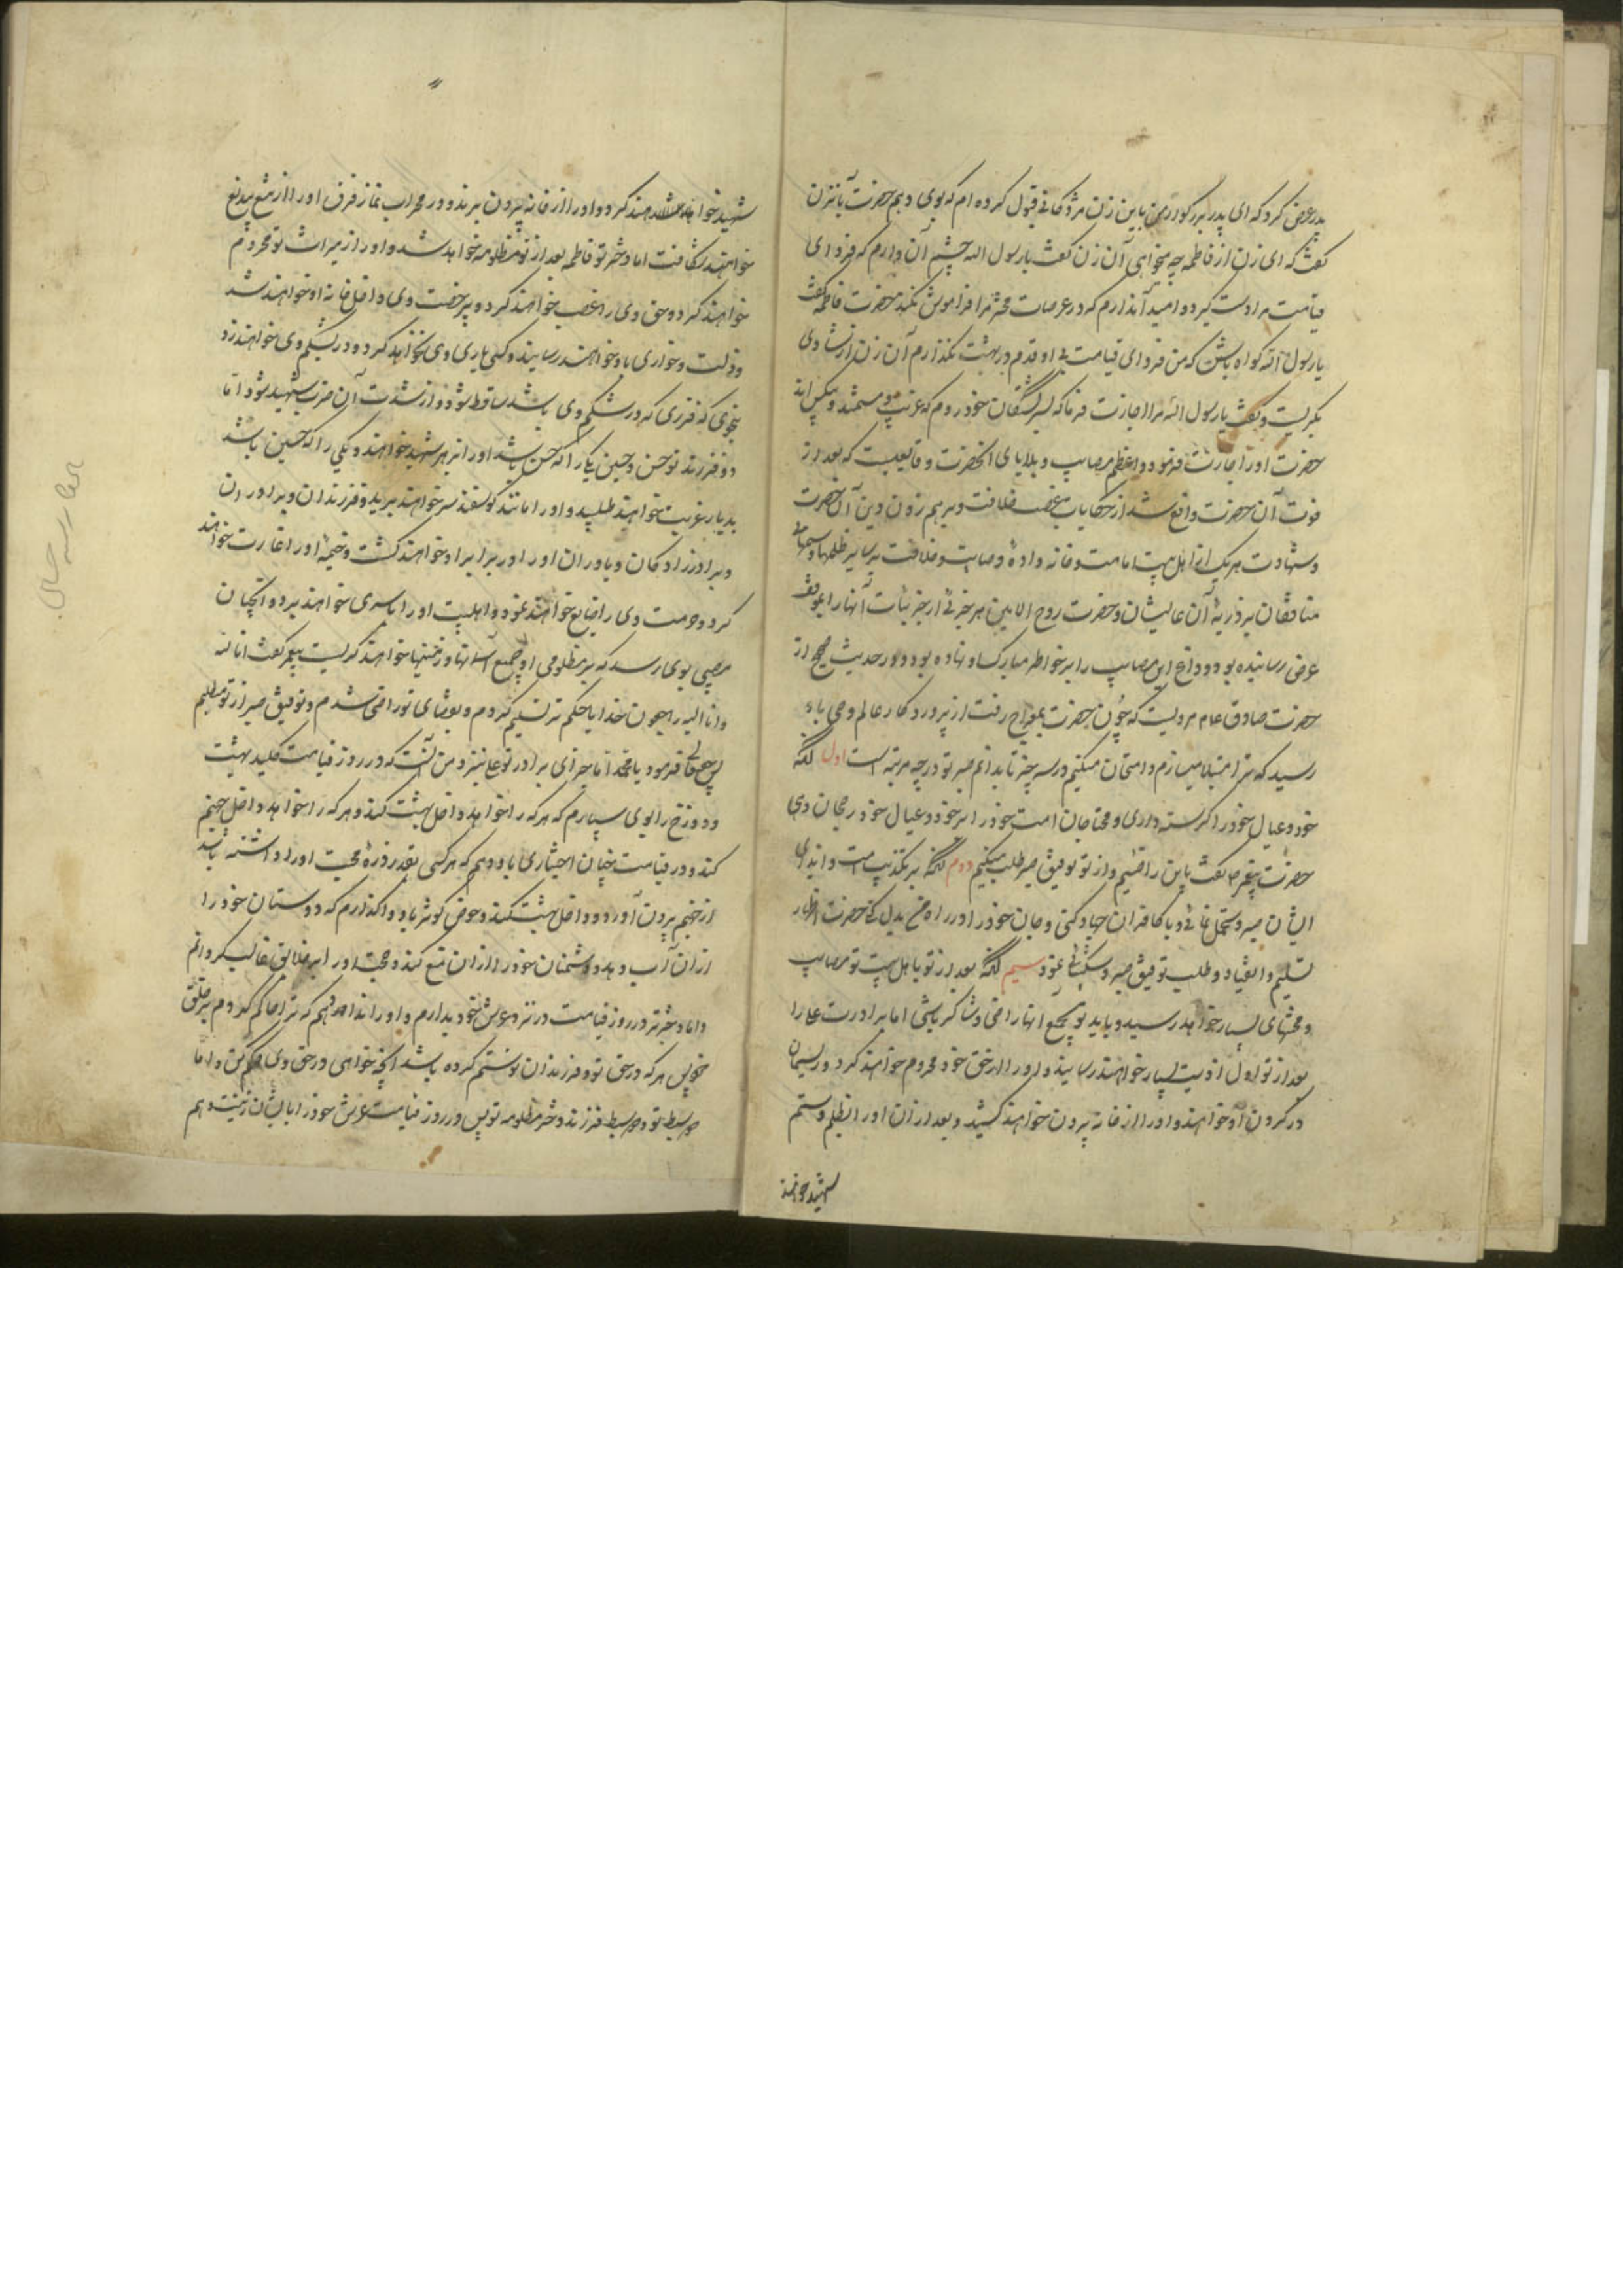 پدر عرض کرد که ای پدر بزرگوار من باین زن مژدگانی قبول کرده ام که بوی دهم حضرت بآنزن
گفت که ای زن از فاطمه چه میخواهی آن زن گفت یا رسول الله چشم آن دارم که فردای
قیامت مرا دست گیرد و امید آن دارم که در عرصات محشر مرا فراموش نکند حضرت فاطمه گفت
یا رسول الله کواه باش که من فردای قیامت بی او قدم در بهشت نگذارم آن زن از شادی
بگریست و گفت یا رسول الله مرا اجازت فرما که بسر کشتگان خود روم که غریب و مستمند و بیکس اند
حضرت او را اجازت فرمود و اعظم مصایب و بلایای آنحضرت وقایعیست که بعد از
فوت آن حضرت واقع شد از حکایات غصب خلافت و برهم زدن دین آن حضرت
و شهادت هر یک از اهل بیت امامت و خانواده وصایت و خلافت و سایر ظلمها و ستمهای
منافقان بر ذریه آن عالیشان و حضرت روح الامین هر جزئی از جزئیات آنها را بموقف
عرض رسانیده بود و داغ این مصایب را بر خواطر مبارکش نهاده بود و در حدیث صحیح از
حضرت صادق ع مرویست که چون حضرت بمعراج رفت از پروردگار عالم وحی باو
رسید که ترا مبتلا میسازم و امتحان میکنم در سه چیز تا بدانم صبر تو در چه مرتبه است اول آنکه
خود و عیال خود را گرسنه داری و محتاجان امت خود را بر خود و عیال خود رجحان دهی
حضرت پیغمبر ص گفت باین راضیم و از تو توفیق صبر طلب میکنم دوم آنکه بر تکذیب امت و ایذای
ایشان صبر و تحمل نمائی و با کافران جهاد کنی و جان خود را در راه من بدل کنی حضرت اظهار
تسلیم و انقیاد و طلب توفیق صبر و شکیبائی نمود سیم آنکه بعد از تو باهل بیت تو مصایب
و محنتهای بسیار خواهد رسید و باید تو بجمیع آنها راضی و شاکر باشی اما برادرت علی را
بعد از تو اول اذیت بسیار خواهند رسانید و او را از حق خود محروم خواهند کرد و ریسمان
در گردن او خواهند و او را از خانه بیرون خواهند کشید و بعد از آن او را بظلم و ستم
شهید خواهند
شهید خواهند کرد و او را از خانه بیرون برند و در محراب نماز فرق او را از تیغ بیدریغ
خواهند شکافت اما دختر تو فاطمه بعد از تو مظلومه خواهد شد و او را از میراث تو محروم
خواهند کرد و حق وی را غصب خواهند کرد و بیرخصت وی داخل خانه او خواهند شد
و ذلت و خواری باو خواهند رسانید و کسی یاری وی نخواهد کرد و در بشکم وی خواهند زد
بنحوی که فرزندی که در شکم وی باشد ساقط شود و از شدت آن ضرب شهید شود اما
دو فرزند تو حسن و حسین یکی را که حسن باشد او را بزهر شهید خواهند و یکی را که حسین باشد
بدیار غربت خواهند طلبید و او را مانند گوسفند سر خواهند برید و فرزندان و برادران
و برادرزادگان و یاوران او را در برابر او خواهند کشت و خیمه او را غارت خواهند
کرد و حرمت وی را ضایع خواهند نمود و اهلبیت او را باسیری خواهند برد و آنچنان
مصیبتی بوی رسد که بر مظلومی او جمیع آسمانها و زمینها خواهند گریست پیغمبر گفت انا لله
و انا الیه راجعون خدایا حکم تو تسلیم کردم و بقضای تو راضی شدم و توفیق صبر از تو میطلبم
پس حقتعالی فرمود یا محمد اما جزای برادر تو علی نزد من آنست که در روز قیامت کلید بهشت
و دوزخ را بوی سپارم که هر که را خواهد داخل بهشت کند و هر که را خواهد داخل جهنم
کند و در قیامت چنان اختیاری باو دهم که هر کس بقدر ذره محبت او را داشته باشد
از جهنم بیرون آورد و داخل بهشت کند و حوض کوثر باو واگذارم که دوستان خود را
از آن آب دهد و دشمنان خود را از آن منع کند و محبت او را بر خلایق غالب گردانم
و اما دخترت در روز قیامت در نزد عرش خود بدارم و او را ندا دهم که ترا حاکم کردم بر خلق
خویش هر که در حق تو و فرزندان تو ستم کرده باشد آنچه خواهی در حق وی حکم کن و اما
دو سبط تو دو فرزند دختر مظلومه تو پس در روز قیامت عرش خود را بایشان زینت دهم